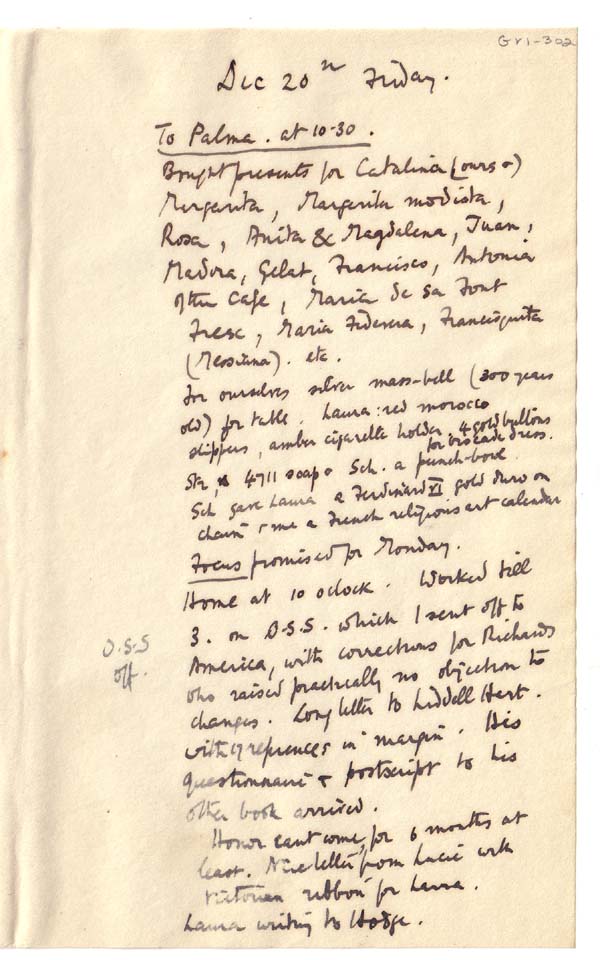 GV1-302
Dec 20th Friday.
To Palma. at 10-30.
Bought presents for Catalina (ours &)
Margarita, Margarita modista,
Rosa, Anita & Magdalena, Juan,
Madora, Gelat, Francisco, Antonia
of the Cafe, Maria de Sa Font
Fresc, Maria, Francisquita
(Messiana). etc.
For ourselves silver mass-bell (300 years
old) for table. Laura: red morocco
slippers, amber cigarette holder, 4 gold buttons
for brocade dress.
4711 soap & Sch. a punch-bowl.
Sch gave Laura a Ferdinard VI gold duro on
chain & me a French religious art calendar
Focus promised for Monday.
Home at 10 oclock. Worked till
3. on O.S.S. which I sent off to
O.S.S
off.
America, with corrections for Richards
who raised practically no objection to
changes. Long letter to Liddell Hart.
with references in margin. His
questionnaire & postscript to his
other book arrived.
Honor cant come, for 6 months at
least. Nice letter from Lucie with
Victorian ribbon for Laura.
Laura writing to Hodge.